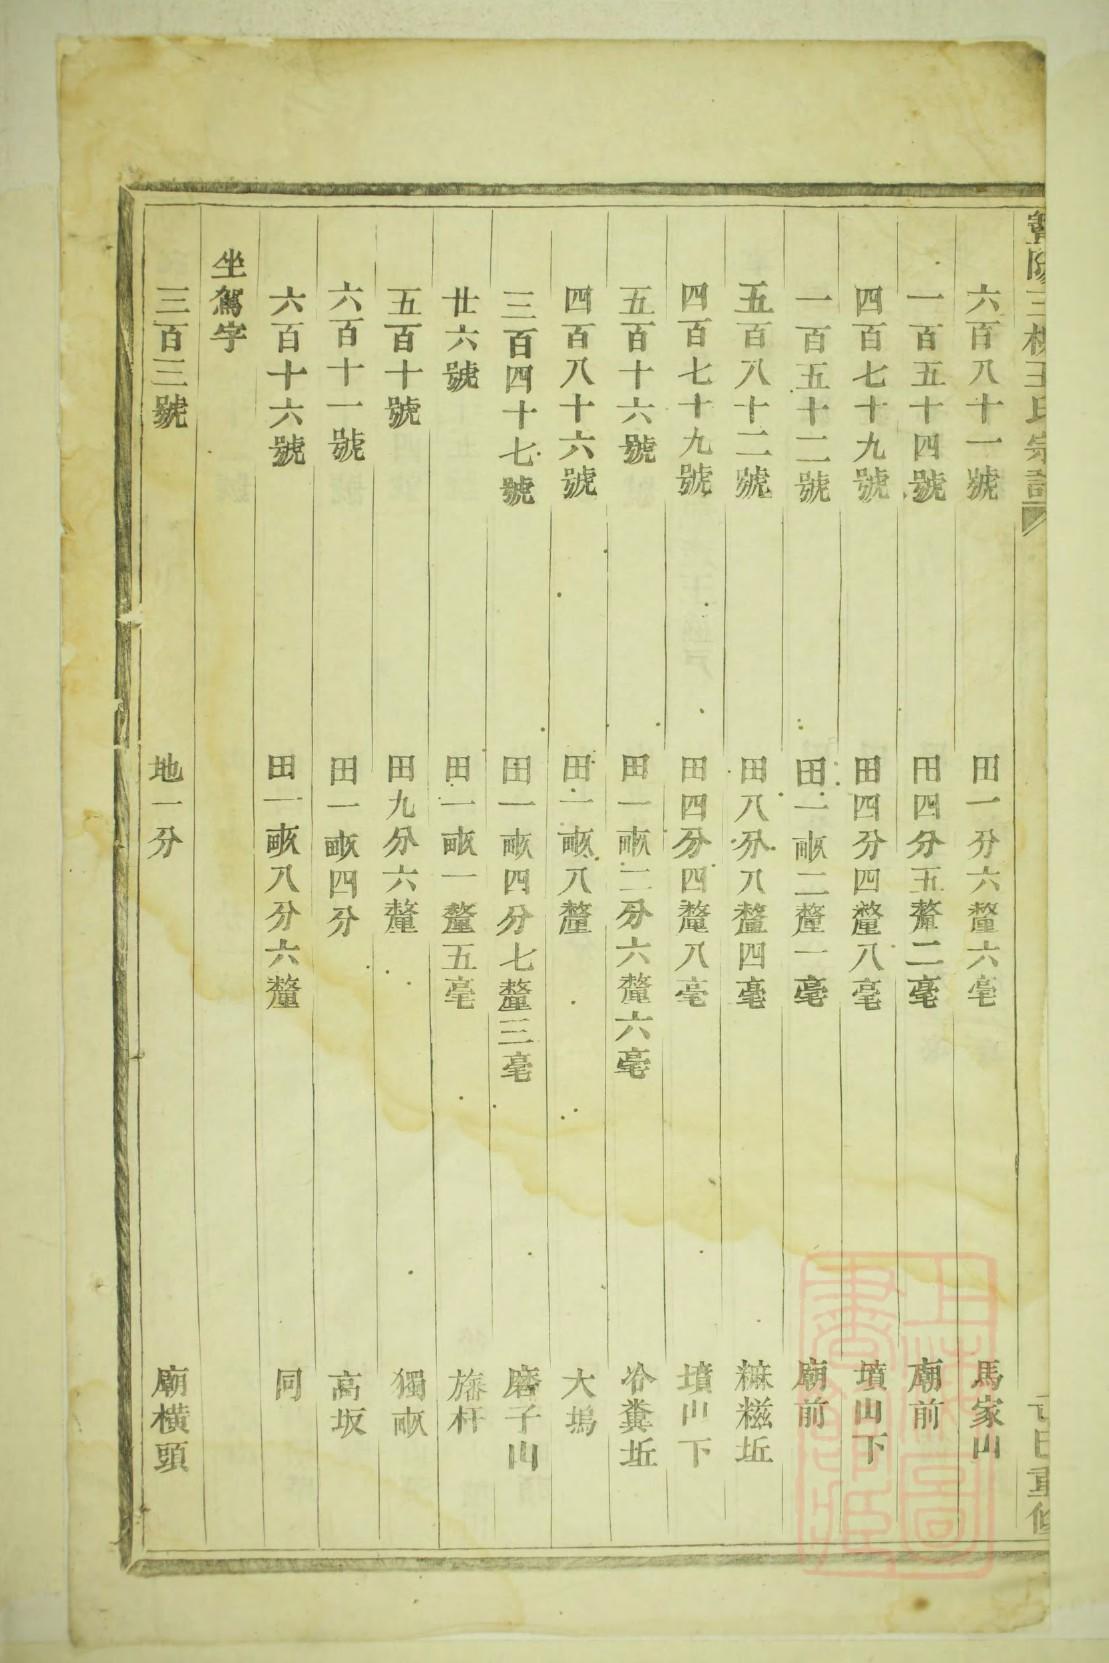 六百八十一號 田一分六釐六毫 馬家山
一百五十四號 田四分五釐二毫 廟前
四百七十九號 田四分四釐八毫 墳山下
一百五十二號 田一畝二釐一毫 廟前
五百八十二號 田八分八釐四毫 糍坵
四百七十九號 田四分四釐八毫 墳山下
五百十六號 田一畝二分六釐六毫 糞坵
四百八十六號 田一畝八釐 大塢
三百四十七號 田一畝四分七釐三毫 磨子山
廿六號 田一畝一釐五毫 旛杆
五百十號 田九分六釐 獨畝
六百十一號 田一畝四分 高坂
六百十六號 田一畝八分六釐 同
坐駕字
三百三號 地一分 廟橫頭